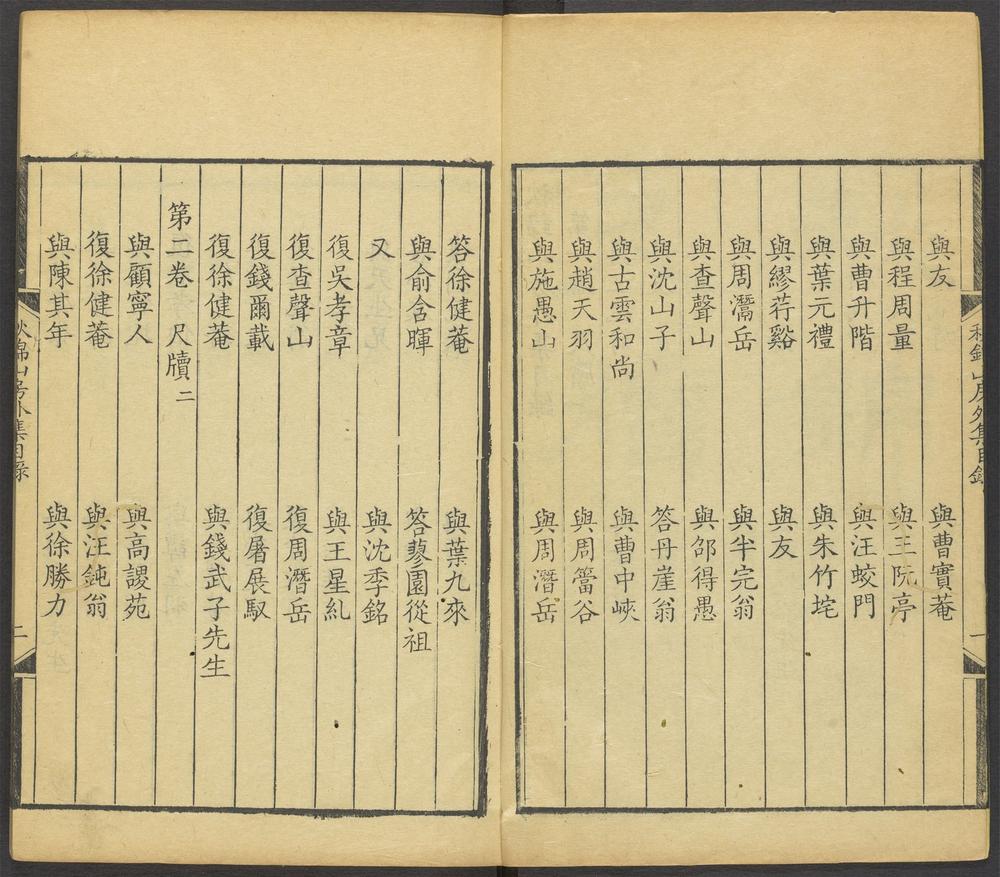 秋錦山房外集目錄 一
與友 與曹實菴
與程周量 與王阮亭
與曹升階 與汪蛟門
與葉元禮 與朱竹垞
與繆荇谿 與友
與周鷰岳 與半完翁
與查聲山 與邵得愚
與沈山子 答丹崖翁
與古雲和尚 與曹中峽
與趙天羽 與周簹谷
與施愚山 與周潛岳
答徐健菴 與葉九來
與俞含暉 答蓼園從祖
又 與沈季銘
復吳孝章 與王星糺
復查聲山 復周潛岳
復錢爾載 復屠展馭
復徐健菴 與錢武子先生
第二卷 尺牘二
與顧寧人 與高謖苑
復徐健菴 與汪鈍翁
與陳其年 與徐勝力
秋錦山房外集目錄 二